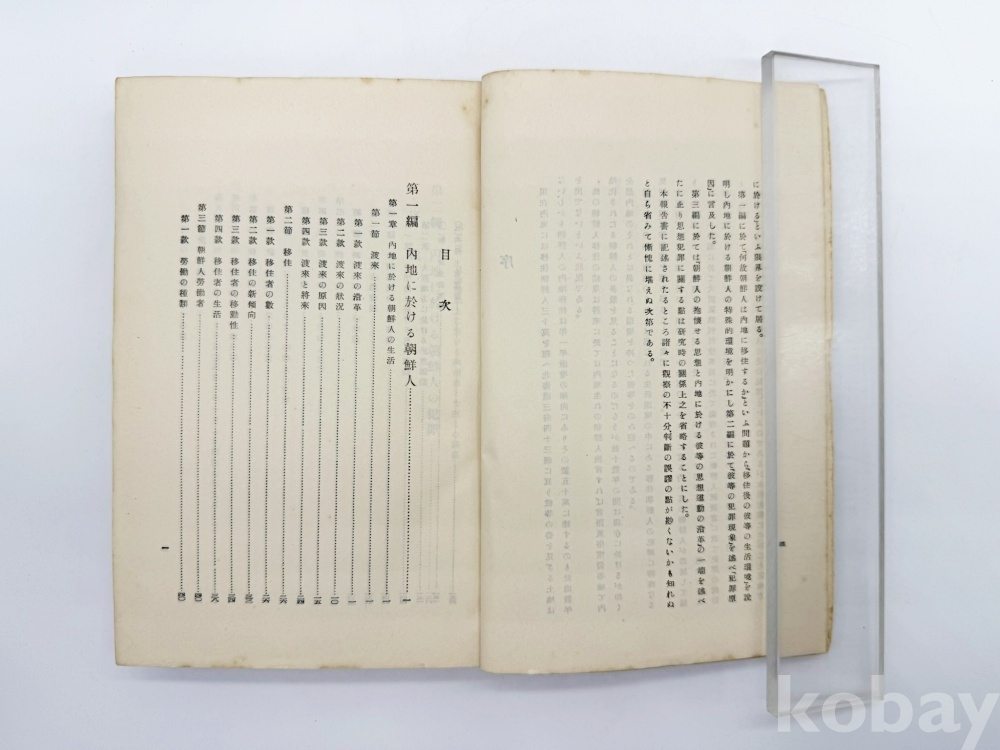 に於けるといふ限界を設けて居る。
第一編に於て「何故朝鮮人は内地に移住するか」といふ問題から「移住後の彼等の生活環境」を說
明し内地に於ける朝鮮人の特殊的環境を明かにし第二編に於て「彼等の犯罪現象」を述べ「犯罪原
因」に言及した。
第三編に於ては「朝鮮人の抱懐せる思想と内地に於ける彼等の思想運動の沿革」の一端を述べ
たに止り思想犯罪に關する點は研究時の關係上之を省略することにした。
本報告書に記述されたるところ諸々に觀察の不十分判斷の誤謬の點が尠くないかも知れぬ
と自ら省みて慚愧に堪えぬ次第である。
目次
第一編 內地に於ける朝鮮人……一
第一章 內地に於ける朝鮮人の生活……一
第一節 渡來……一
第一款 渡來の沿革……一
第二款 渡來の狀況……一〇
第三款 渡來の原因……一五
第四款 渡來と將來……
第二節 移住……
第一款 移住者の數……
第二款 移住の新傾向……
第三款 移住者の移動性……
第四款 移住者の生活……
第三節 朝鮮人勞働者……
第一款 勞働の種類……
一
kobay